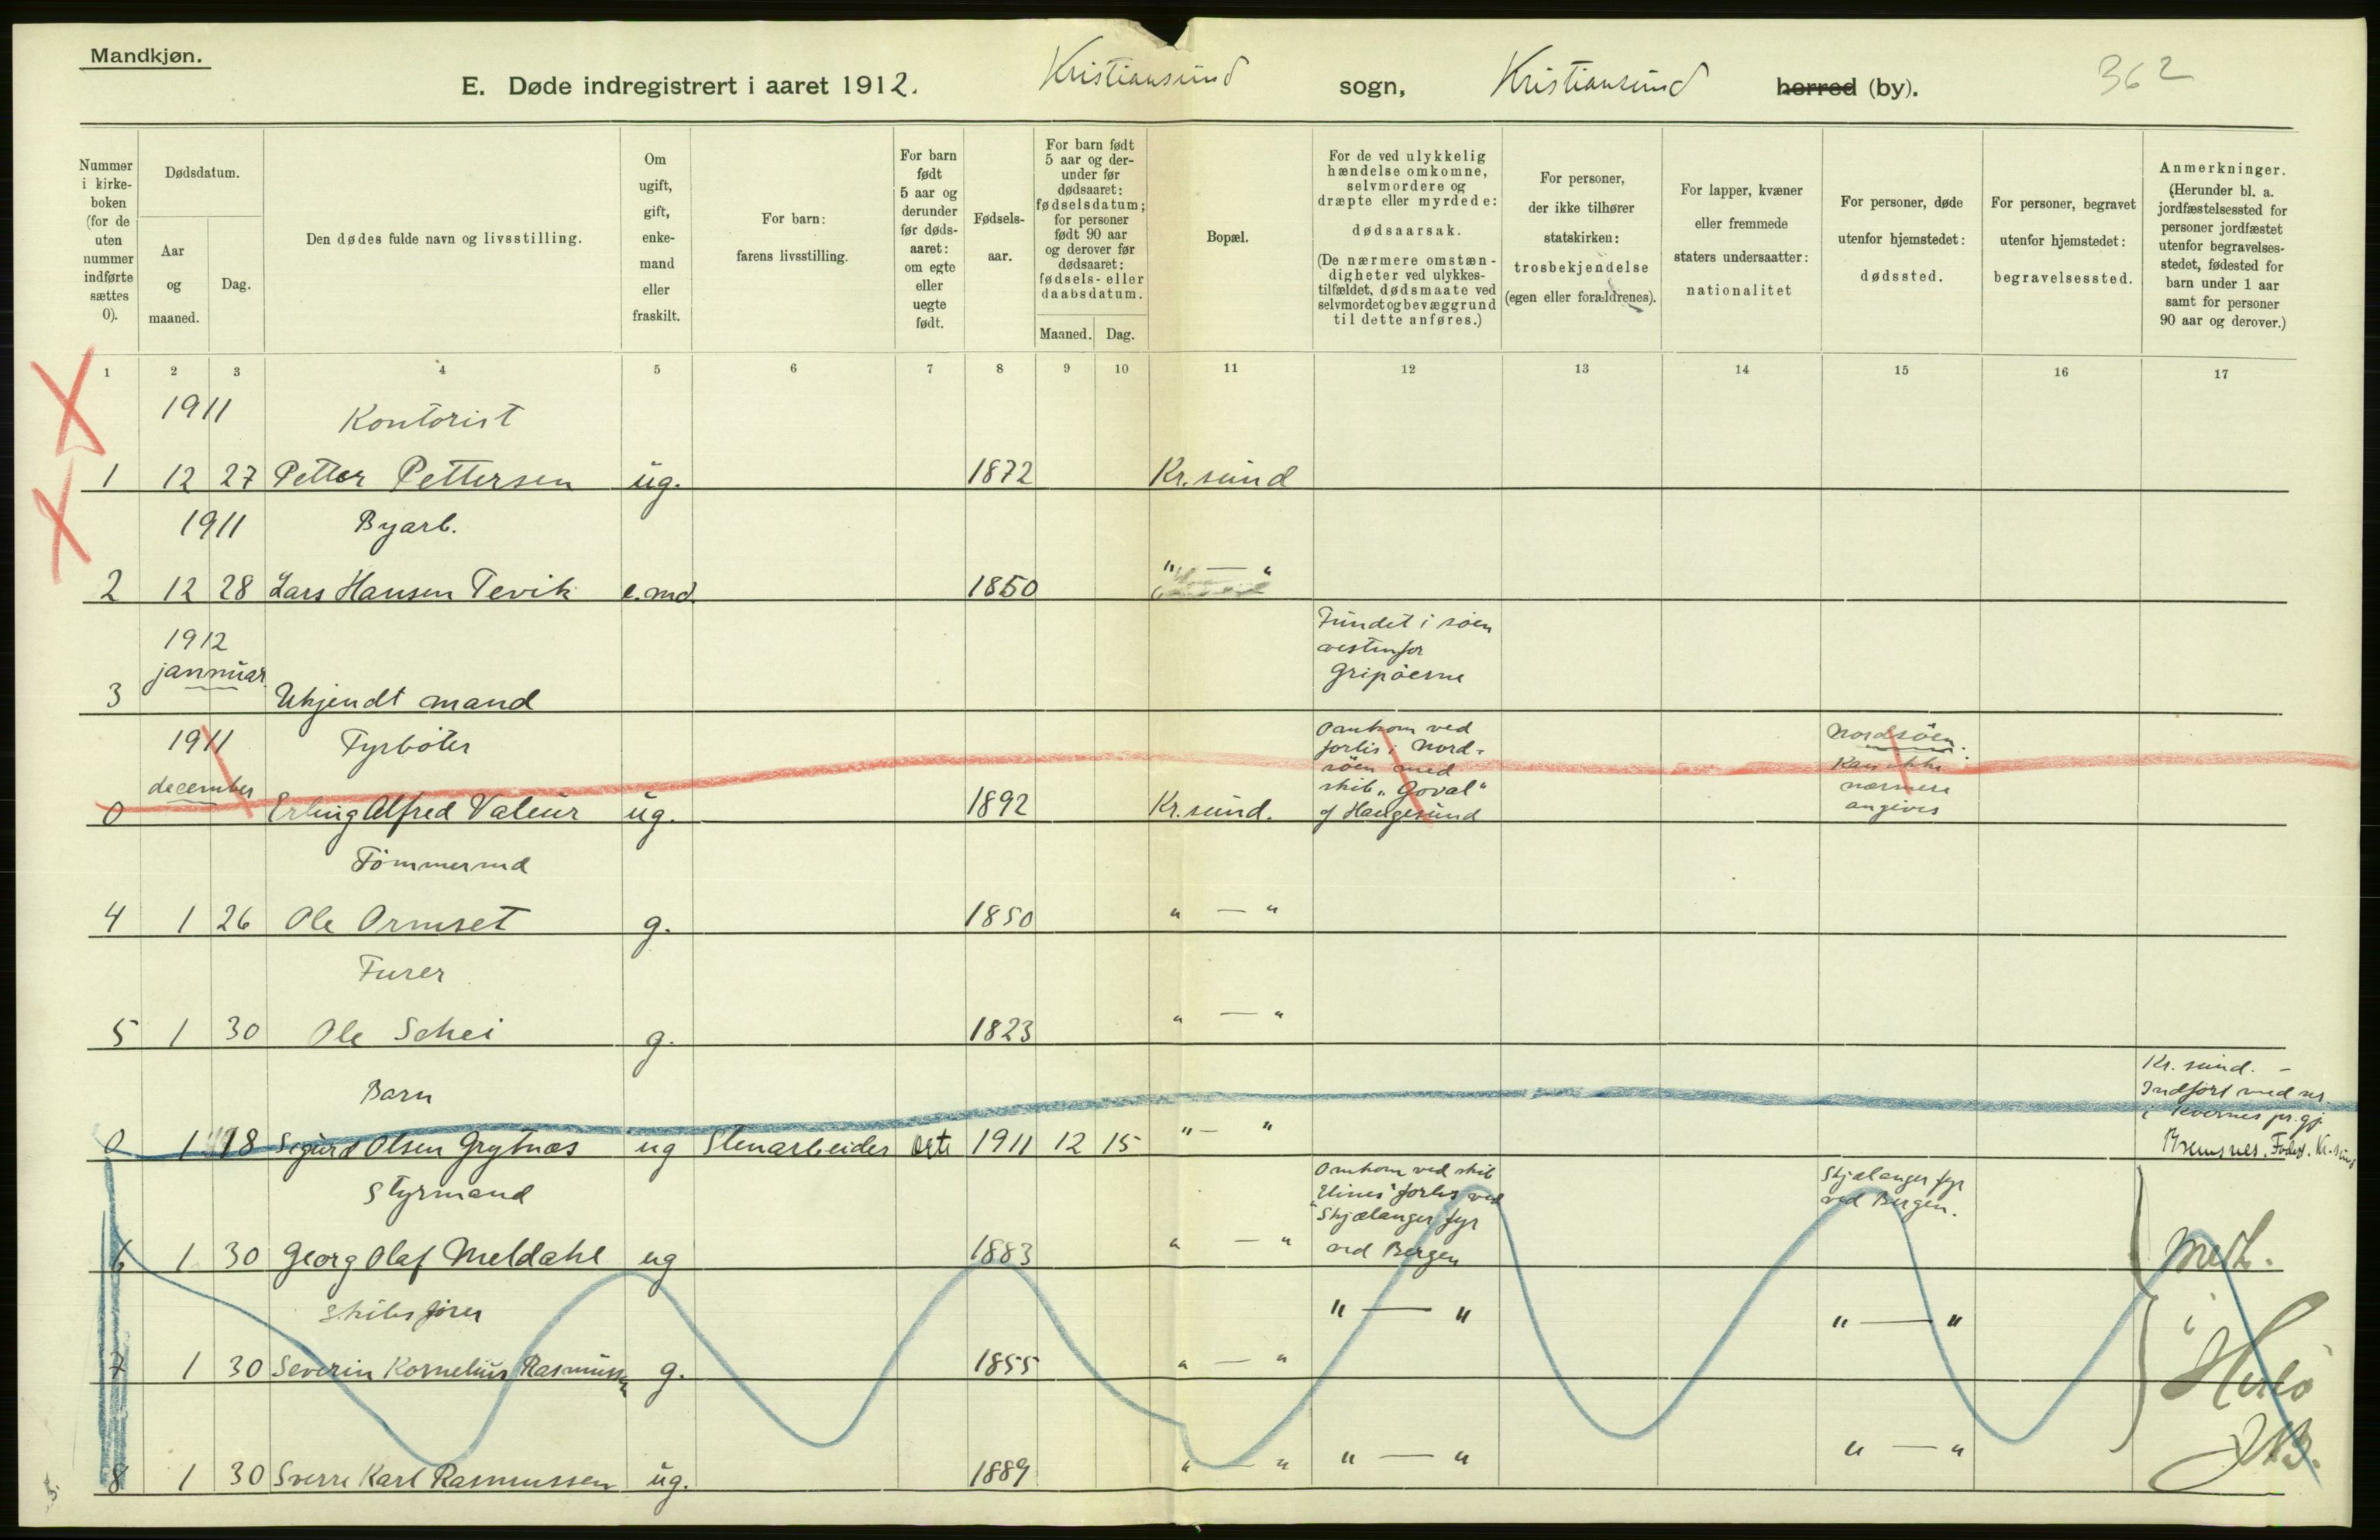 Mandkjøn.
E. Døde indregistrert i aaret 1912. Kristiansund sogn, Kristiansund herred (by). 362
Nummer i kirke-boken (for de uten nummer indførte sættes 0).
Dødsdatum.
Aar og maaned.
Dag.
Den dødes fulde navn og livsstilling.
Om ugift, gift, enke-mand eller fraskilt.
For barn: farens livsstilling.
For barn født 5 aar og derunder før døds-aaret: om egte eller uegte født.
Fødsels-aar.
For barn født 5 aar og der-under før dødsaaret: fødselsdatum; for personer født 90 aar og derover før dødsaaret: fødsels- eller daabsdatum.
Maaned. Dag.
Bopæl.
For de ved ulykkelig hændelse omkomne, selvmordere og dræpte eller myrdede: dødsaarsak. (De nærmere omstæn-digheter ved ulykkes-tilfældet, dødsmaate ved selvmordet og bevæggrund til dette anføres.)
For personer, der ikke tilhører statskirken: trosbekjendelse (egen eller forældrenes).
For lapper, kvæner eller fremmede staters undersaatter: nationalitet
For personer, døde utenfor hjemstedet: dødssted.
For personer, begravet utenfor hjemstedet: begravelsessted.
Anmerkninger. (Herunder bl. a. jordfæstelsessted for personer jordfæstet utenfor begravelses-stedet, fødested for barn under 1 aar samt for personer 90 aar og derover.)
1 2 3 4 5 6 7 8 9 10 11 12 13 14 15 16 17
1911 Kontorist
1 12 27 Petter Pettersen ug. 1872 Kr.sund
1911 Byarb.
2 12 28 Lars Hansen Tevik e.md. 1850 " — "
1912 Fundet i søen
jannuar vestenfor
3 Ukjendt mand Gripøerne
1911 Fyrbøter Omkom ved Nordsøen.
forlis i Nord- Kan ikke
december søen med nærmere
0 Erling Alfred Valeur ug. 1892 Kr.sund. skib "Goval" angives
af Haugesund
Tømmermd
4 1 26 Ole Ormset g. 1850 " — "
Furer
5 1 30 Ole Schei g. 1823 " — "
Kr. sund. -
Barn Indført med nr.
i Kvernes pr.gj.
0 1 18 Sigurd Olsen Grytnæs ug Stenarbeider ekte 1911 12 15 " — " Bremsnes. Føded. Kr.sund
Styrmand Omkom ved skib Skjælanger fyr
"Elines" forlis ved ved Bergen.
Skjælanger fyr
6 1 30 Georg Olaf Meldahl ug 1883 " — " ved Bergen
Skibsfører " — " " — "
7 1 30 Severin Kornelius Rasmussen g. 1855 " — "
i
8 1 30 Sverre Karl Rasmussen ug. 1889 " — " " — " " — "